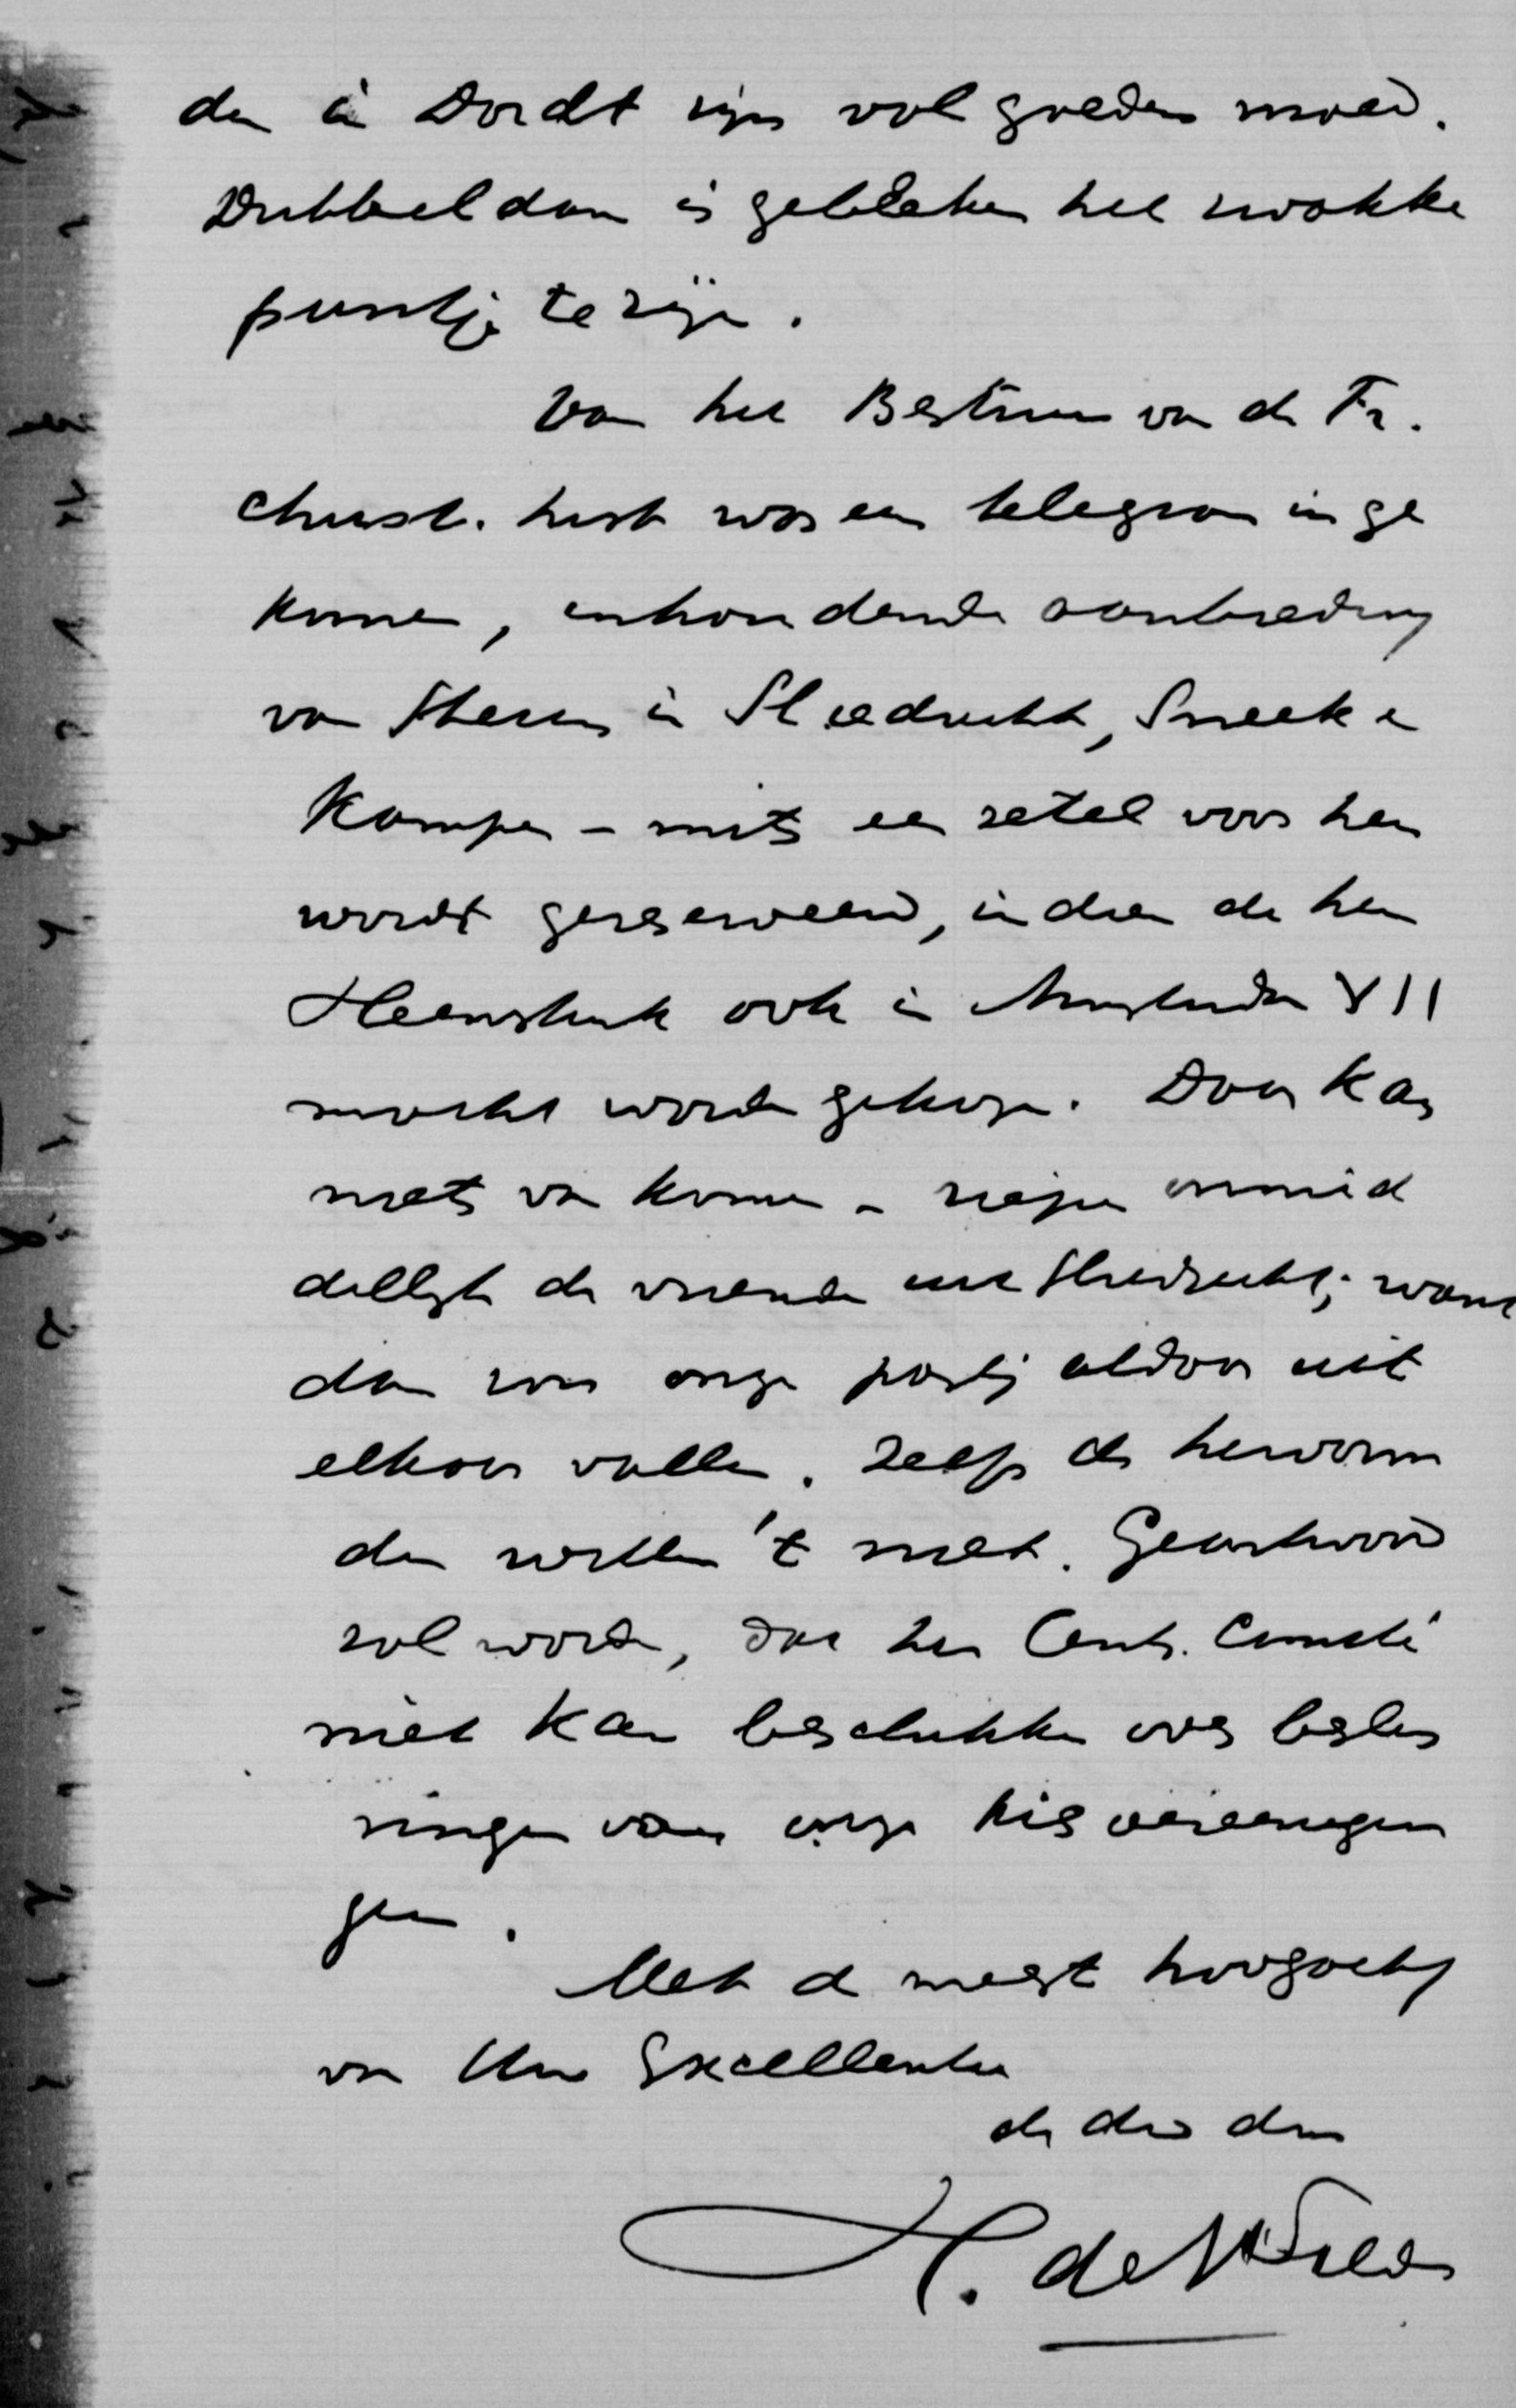 den in Dordt zijn vol goeden moed.
Dubbeldam is gebleken het zwakke
puntje te zijn.
Van het Bestuur van de Fr.
Christ. hist was een telegram inge
komen, inhoudende aanbieding
van steun in Sliedrecht, Sneek en
Kampen – mits een zetel voor hen
wordt gereserveerd, indien de heer
Heemskerk ook in Amsterdam VII
mocht worden gekozen. Daar kan
niets van komen – riepen onmid
dellijk de vrienden uit Sliedrecht; want
dan zou onze partij aldaar uit
elkaar vallen. Zelfs de hervorm
den willen 't niet. Geantwoord
zal worden, dat het Centr. Comité
niet kan beschikken over beslis
singen van onze kiesvereenigin
gen.
Met de meest hoogachting
van Uwe Excellentie
de dw dr
H. de Wilde